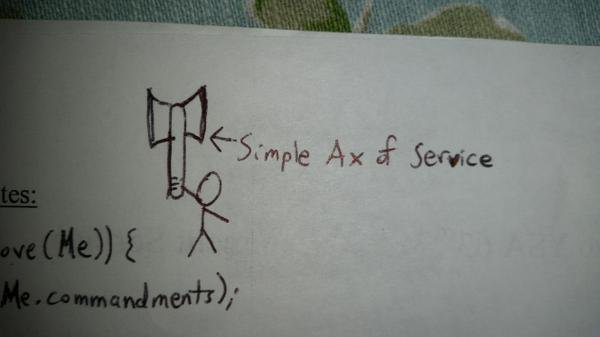 Simple Ax of Service
tes:
ove(Me)) {
Me.commandments);